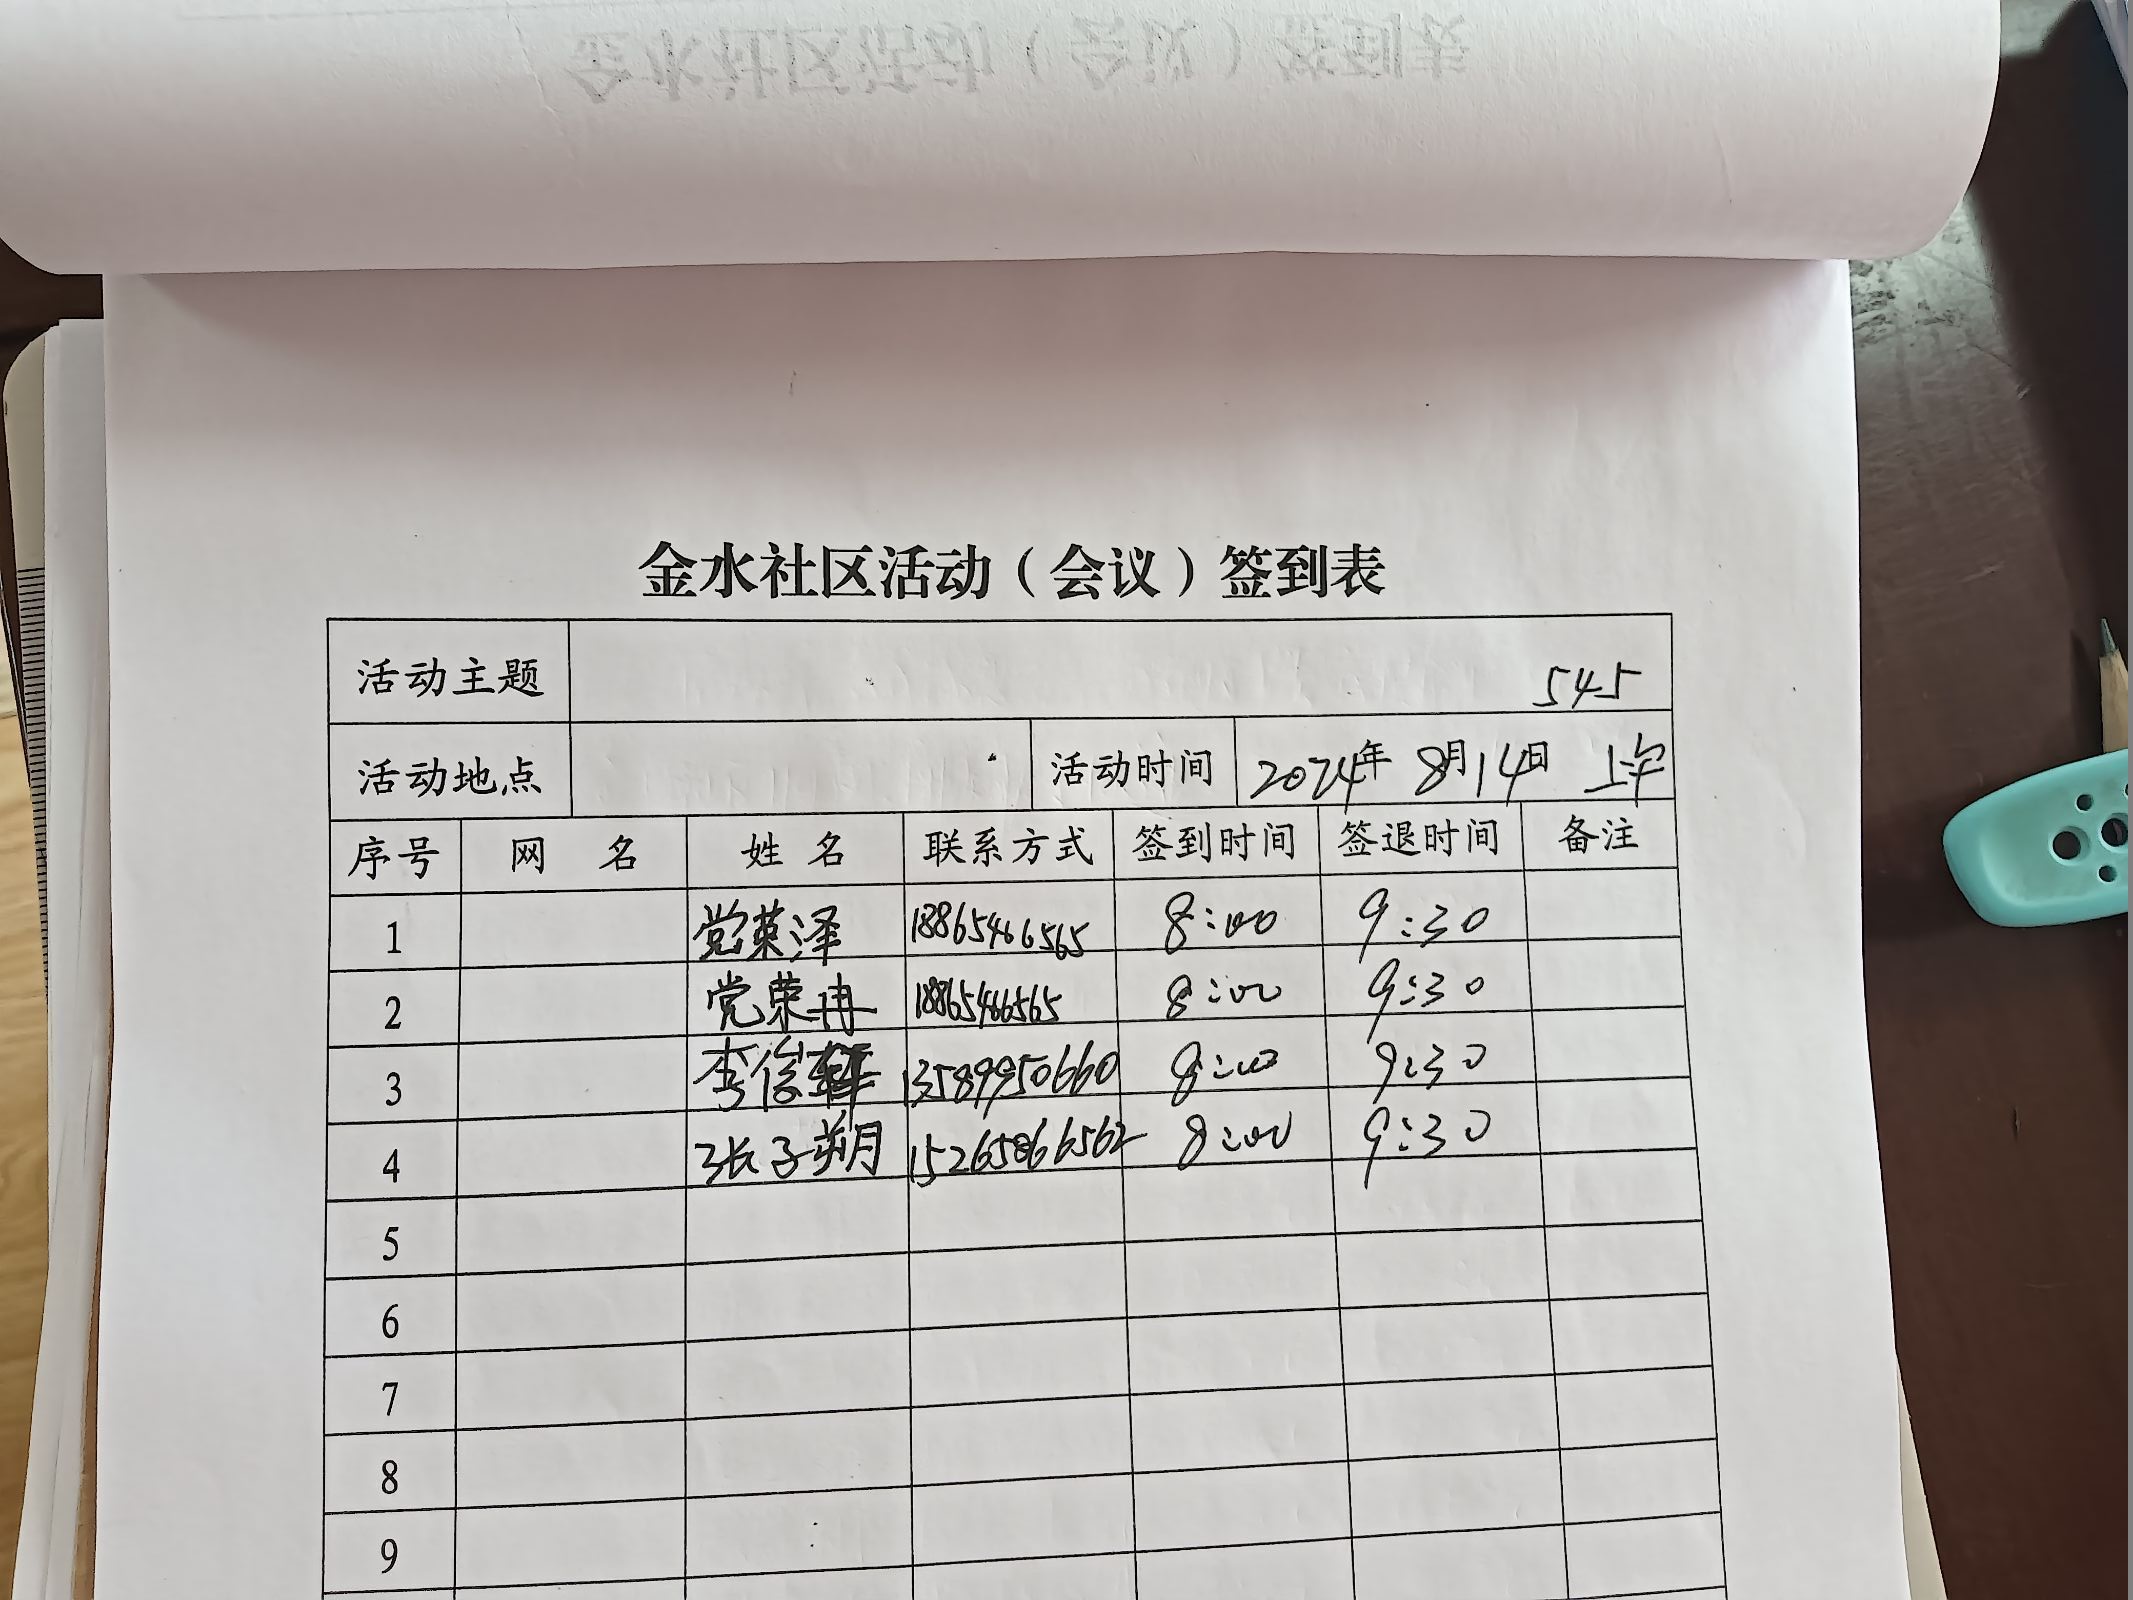 金水社区活动（会议）签到表
活动主题 545
活动地点 活动时间 2024年 8月14日 上午
序号 网 名 姓 名 联系方式 签到时间 签退时间 备注
1 党荣泽 18865466565 8:00 9:30
2 党荣冉 18865466565 8:00 9:30
3 李俊 13589950660 8:00 9:30
4 张子朔 15265866562 8:00 9:30
5
6
7
8
9